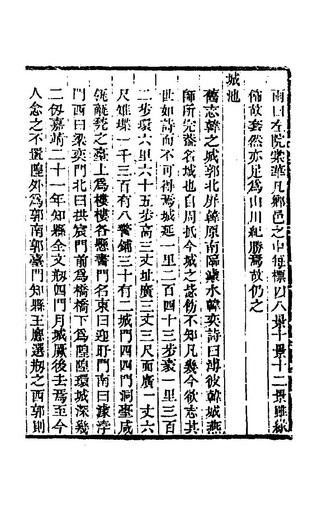 雨曰左院棠華凡鄉邑之中每標四八景十景十二景雖緣
飾故套然亦足為山川紀勝焉故仍之
城池
舊志韓之城郭北屏韓原南阻水韓奕詩曰溥彼韓城燕
師所完蓋名城也自周抵今城之不知凡幾今欲志其
世如詩而不可得焉城延一里二百四十三步袤一里三百
二步環六里六十五步高三丈址廣三丈三尺面廣一丈六
尺雉堞一千三百有八警鋪三十有二城門四四門洞臺咸
瓴甋甃之臺上為樓樓各懸書門名東曰迎門南曰
門西曰梁奕門北曰拱宸門前為橋橋下為隍隍環城深幾
二仞嘉靖二十一年知縣全文刱四門月城厥後去焉至今
人念之不置隍外為郭南郭臺門知縣王應選刱之西郭則